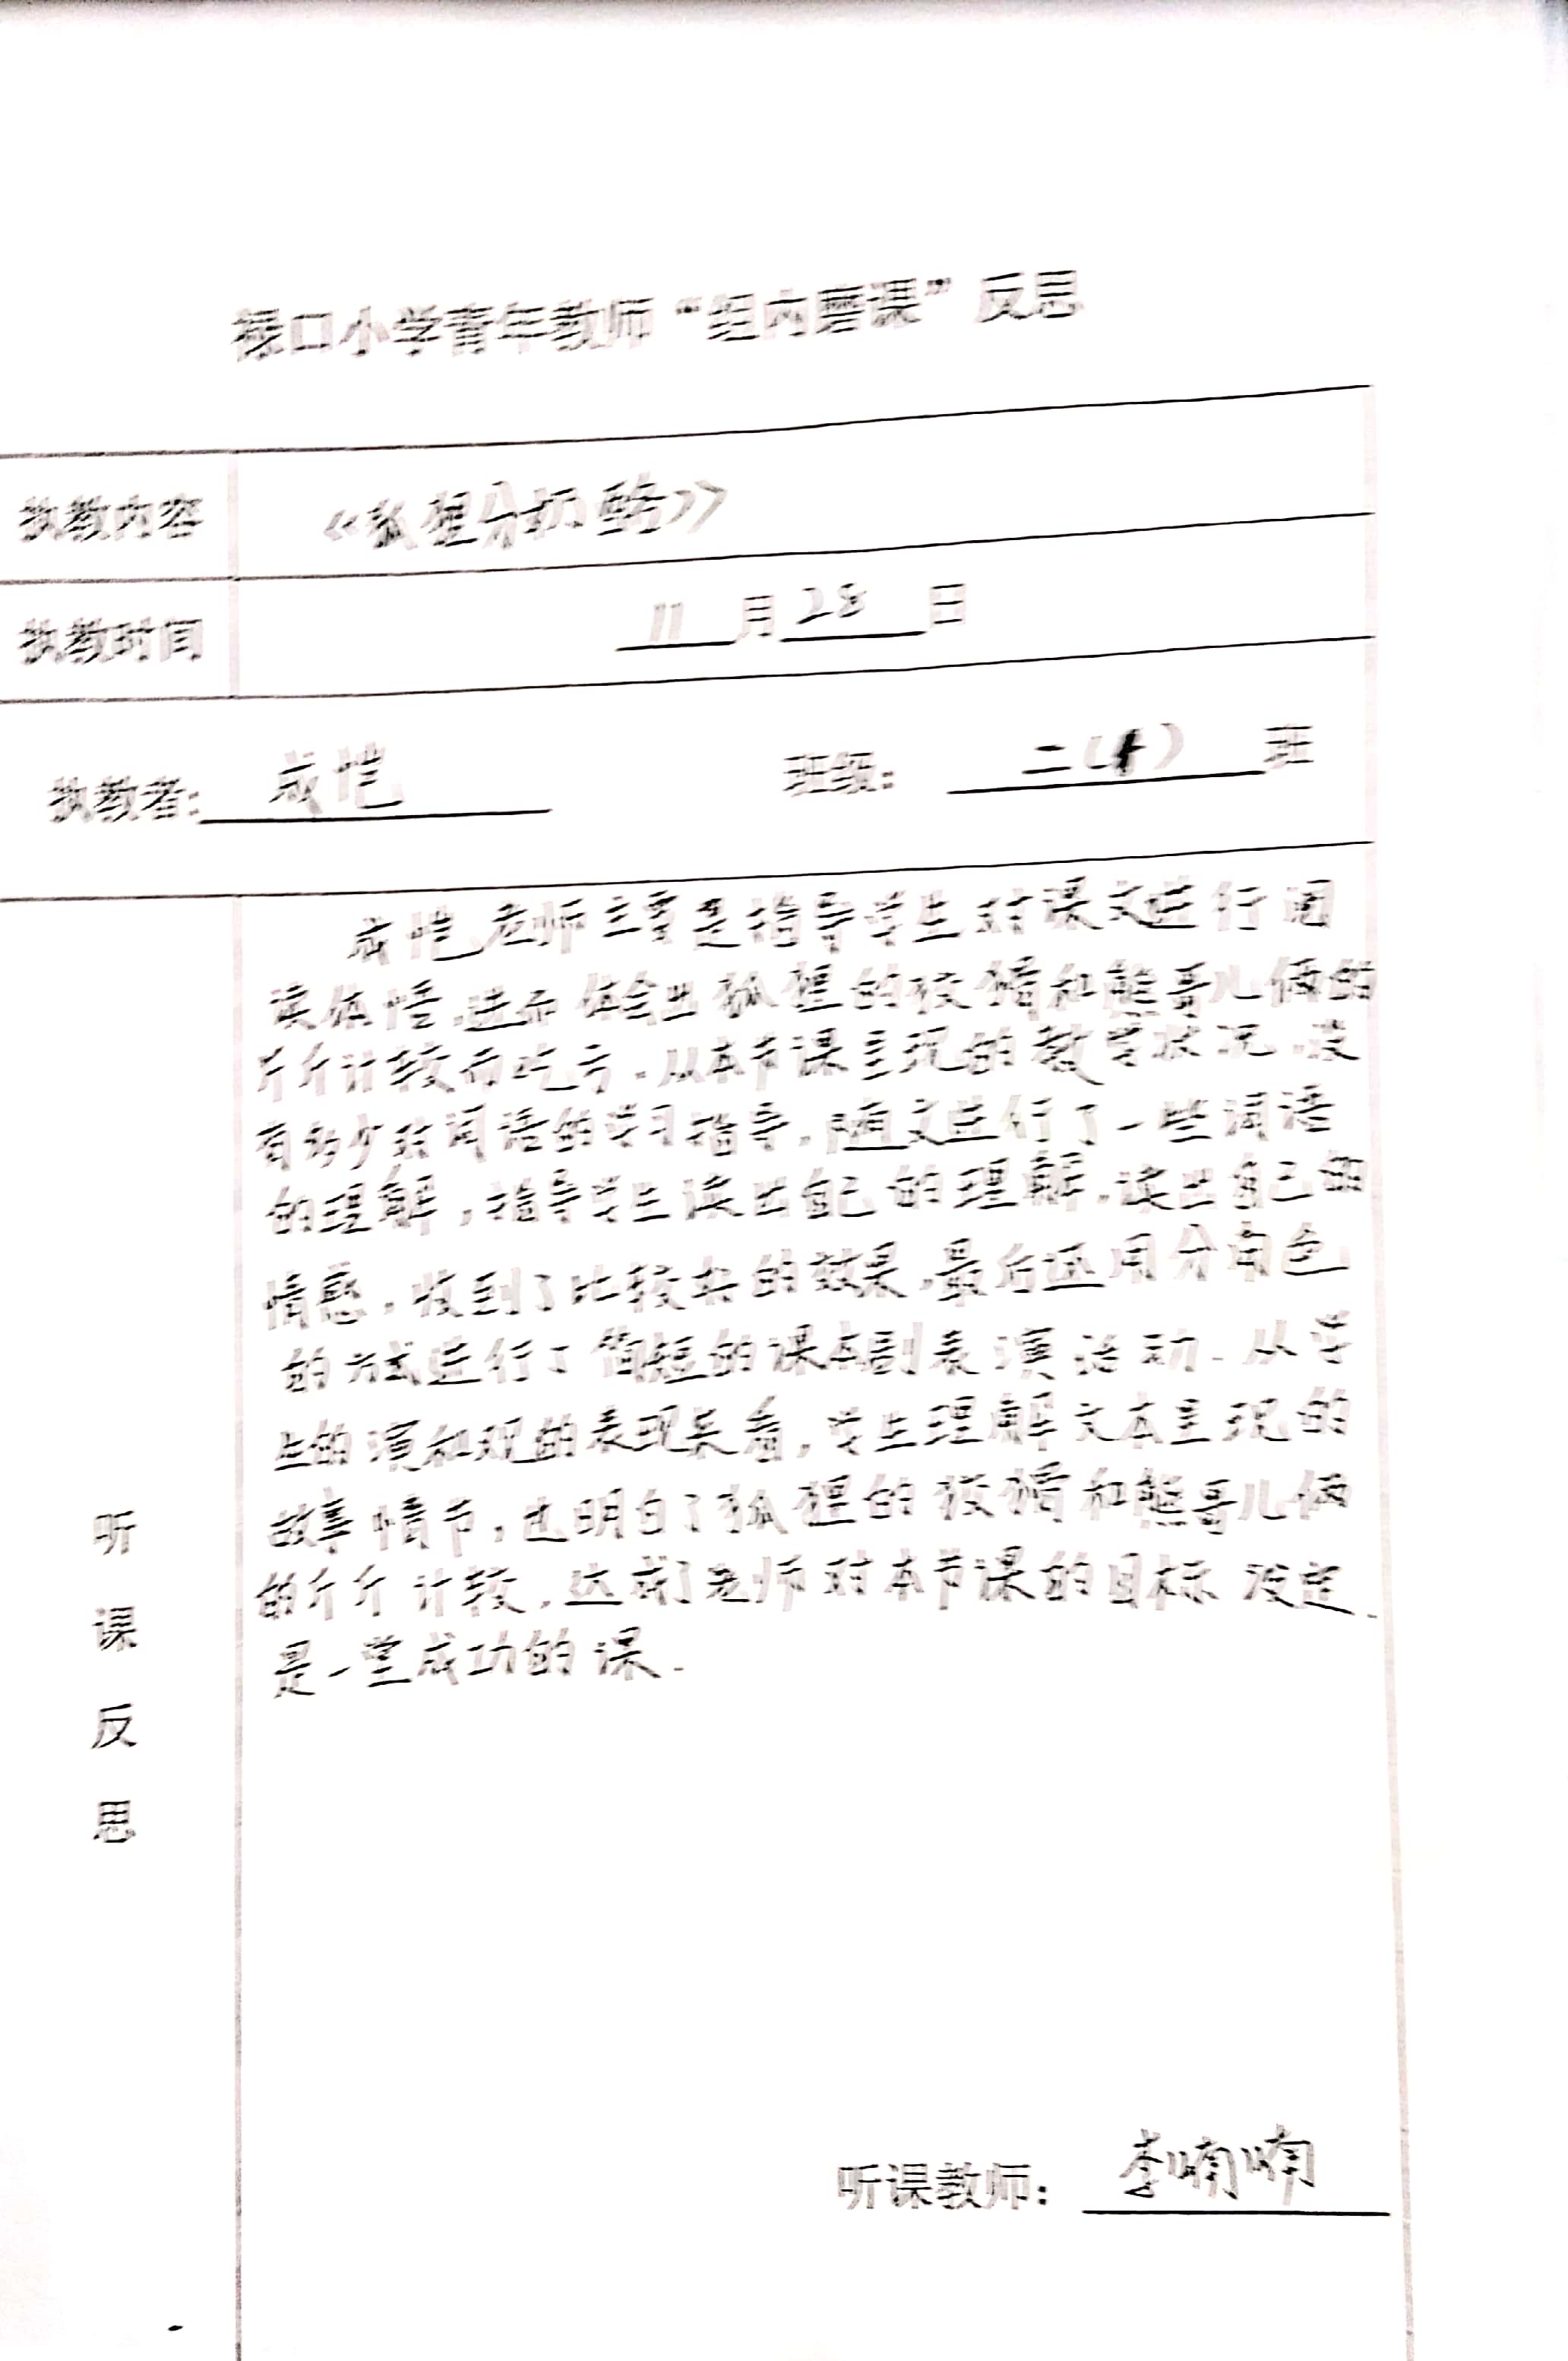 禄口小学青年教师“组内磨课”反思
执教内容 《狐狸分奶酪》
执教时间 11月28日
执教者: 成恺 班级: 二( )班
听课反思
成恺老师主要是指导学生对课文进行阅
读体悟,进而体会出狐狸的狡猾和熊哥儿俩的
斤斤计较而吃亏.从本节课呈现的教学状况,没
有多少对词语的学习指导,随文进行了一些词语
的理解,指导学生读出自己的理解,读出自己的
情感,收到了比较好的效果,最后还用分角色
的方式进行了简短的课本剧表演活动.从学
生的演和观的表现来看,学生理解文本呈现的
故事情节,也明白了狐狸的狡猾和熊哥儿俩
的斤斤计较,达成了老师对本节课的目标设定.
是一堂成功的课.
听课教师: 李喃喃